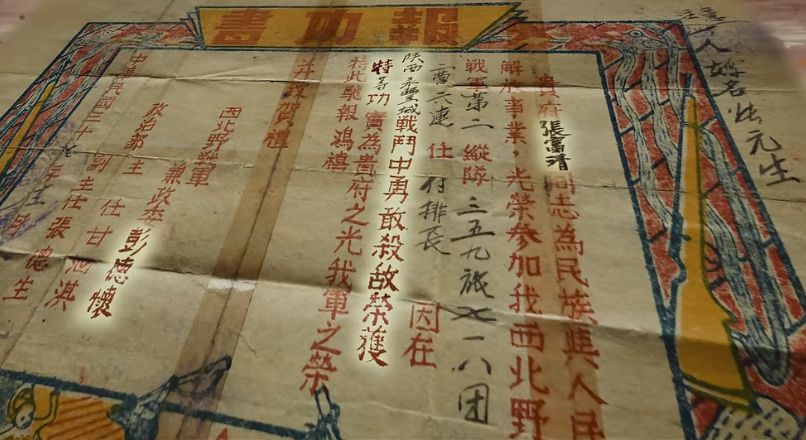 報功書
貴府張富清同志為民族與人民
解放事業，光榮參加我西北野
戰軍第二縱隊三五九旅七一八团
二營六連任付排長 因在
陝西永豐城戰鬥中勇敢殺敵榮獲
特等功實為貴府之光我軍之榮
特此馳報鴻禧
并致賀禧
西北野戰軍
兼政委彭德懷
政治部主任甘泗淇
副主任張德生
中華民國三十七年 月
人姓名 元生